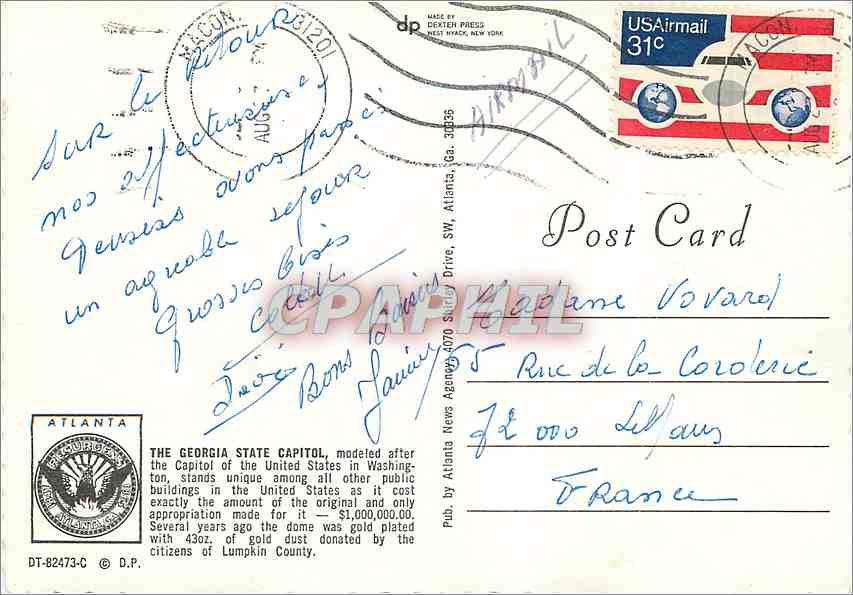 MACON,
31201
AUG
dp
MADE BY
DEXTER PRESS
WEST NYACK, NEW YORK
AIRMAIL
USAirmail
31c
MACON,
AUG
Sur le retour
nos affectueuses
pensées avons passé
un agréable séjour
Grosses bises
Bons Baisers
Post Card
Madame Vovard
55 Rue de la Corderie
72000 Le Mans
France
Pub. by Atlanta News Agency, 4070 Shirley Drive, SW, Atlanta, Ga. 30336
CPAPHIL
ATLANTA
RESURGENS
ATLANTA, GA.
THE GEORGIA STATE CAPITOL, modeled after
the Capitol of the United States in Washing-
ton, stands unique among all other public
buildings in the United States as it cost
exactly the amount of the original and only
appropriation made for it — $1,000,000.00.
Several years ago the dome was gold plated
with 43oz. of gold dust donated by the
citizens of Lumpkin County.
DT-82473-C © D.P.